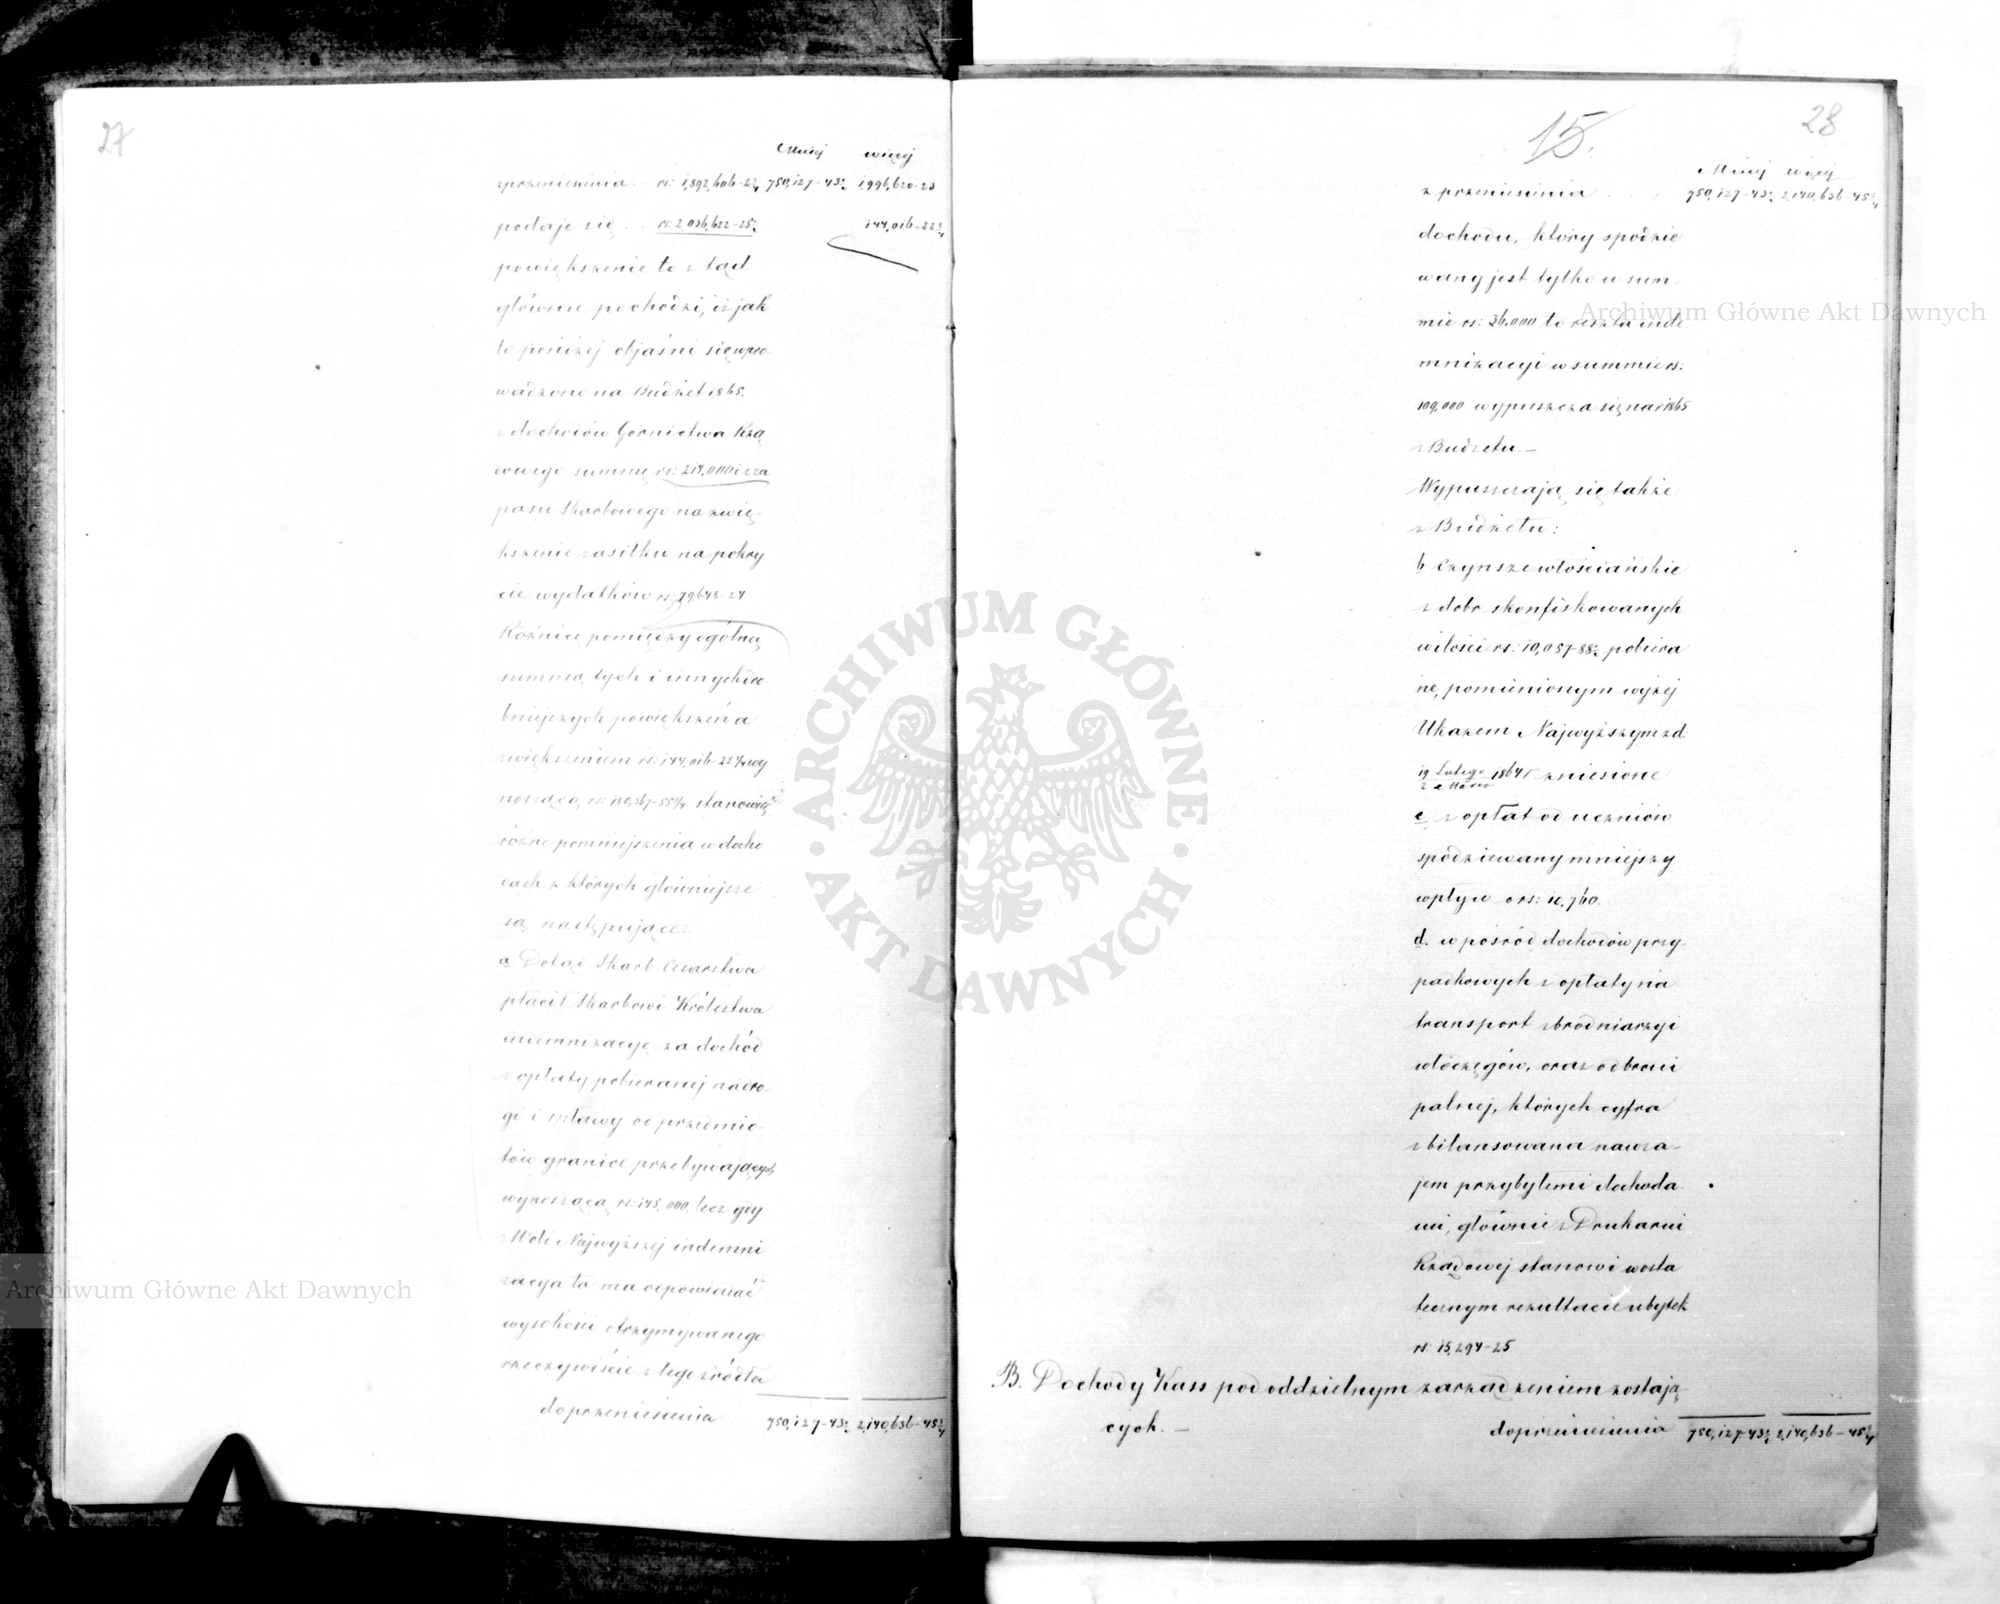 27
Mniej więcej
z przeniesienia rs: 1,892,606-2¾ 750,127-43½ 1,996,620-23
podaje się . . rs: 2,036,622-25½ 144,016-22¾
powiększenie to ztąd
głównie pochodzi, iż jak
to poniżej objaśni się wpro-
wadzono na Budżet 1865.
z dochodów Górnictwa Rzą
dowego summę rs: 214,000 i z za
pasu Skarbowego na zwię-
kszenie zasiłku na pokry
cie wydatków rs: 79,648-24
Różnicę pomiędzy ogólną
summą tych i innych dro
bniejszych powiększeń a
zwiększeniem rs: 144,016-22¾ wy
noszącą rs: stanowią
różne pomniejszenia w docho
dach z których główniejsze
są następujące:
a Dotąd Skarb Cesarstwa
płacił Skarbowi Królestwa
indemnizacyę za dochód
z opłaty pobieranej na dro-
gi i spławy od przedmio-
tów granicę przebywających
wynoszącą rs: 145,000, lecz gdy
z Woli Najwyższej indemni
zacya ta ma odpowiadać
wysokości otrzymywanego
rzeczywiście z tego źródła
do przeniesienia 750,127-43½ 2,140,636-45¾
15.
28
Mniej więcej
z przeniesienia . . . 750,127-43½ 2,140,636-45¾
dochodu, który spodzie
wany jest tylko w sum
mie rs: 36,000 to reszta inde
mnizacyi w summie rs:
109,000 wypuszcza się na r 1865
z Budżetu.—
Wypuszczają się także
z Budżetu:
b Czynsze włościańskie
z dóbr skonfiskowanych
w ilości rs: 10,057-88½ pobiera
ne, pomienionym wyżej
Ukazem Najwyższym z d.
19 Lutego
2 Marca 1864 r zniesione
c z opłat od uczniów
spodziewany mniejszy
wpływ o rs: 10,760.
d. w pośród dochodów przy-
padkowych z opłaty na
transport zbrodniarzy i
włóczęgów, oraz od broni
palnej, których cyfra
zbilansowana nawza-
jem przybyłemi dochoda
mi, głównie z Drukarni
Rządowej stanowi w osta
tecznym rezultacie ubytek
rs: 15,294-25
B. Dochody Kass pod oddzielnym zarządzeniem zostają-
cych.— do przeniesienia 750,127-43½ 2,140,636-45¾
Archiwum Główne Akt Dawnych
Archiwum Główne Akt Dawnych
ARCHIWUM GŁÓWNE
AKT DAWNYCH